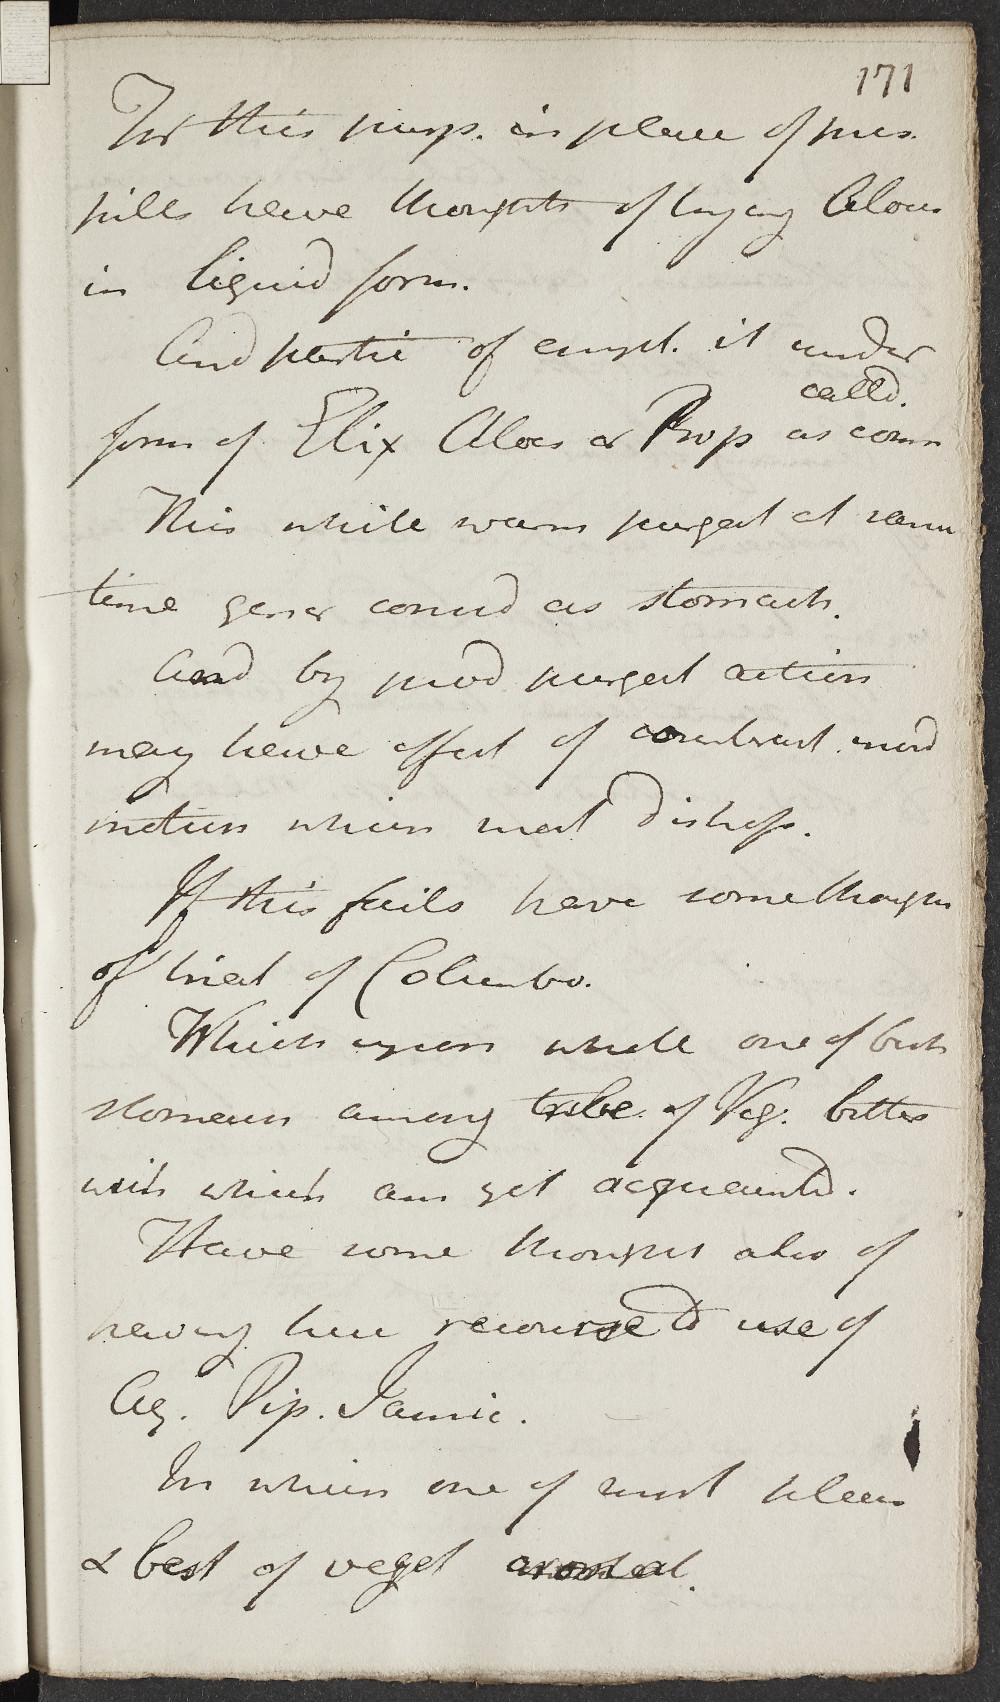 171
For this purp. in place of pres.
pills have thoughts of trying Aloes
in liquid form.
And partic of empl. it under
calld.
form of Elix Aloes & Prop as comm
This while warm purgat at same
time gener consid as stomach.
And by prod purgat action
may have effect of counteract. invd
motion which met distress.
If this fails have some thoughts
of trial of Columbo.
Which upon whole one of best
stomach among tribe of Veg. bitters
with which am yet acquaintd.
Have some thoughts also of
having here recourse to use of
Aq. Pip. Jamic.
In which one of most pleas
& best of veget aromat.